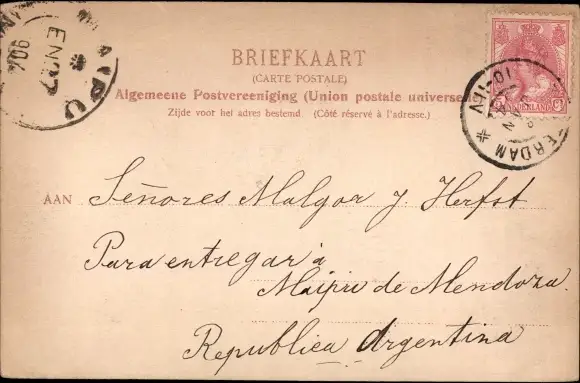 MAIPU
EN 27
904
NEDERLAND
5 Ct
ERDAM
10-11 V
BRIEFKAART
(CARTE POSTALE)
Algemeene Postvereeniging (Union postale universe
Zijde voor het adres bestemd. (Côté réservé à l'adresse.)
AAN Señores Malgor y. Herfst
Para entregar á
Maipu de Mendoza.
Republica Argentina